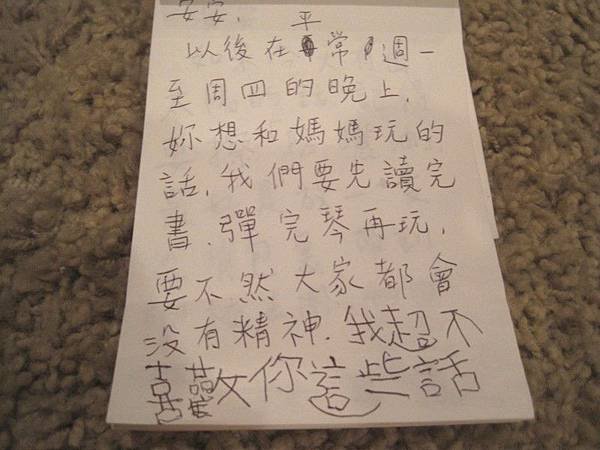 安安,
以後在平常週一
至周四的晚上,
妳想和媽媽玩的
話,我們要先讀完
書,彈完琴再玩,
要不然大家都會
没有精神.我超不
喜歡你這些話